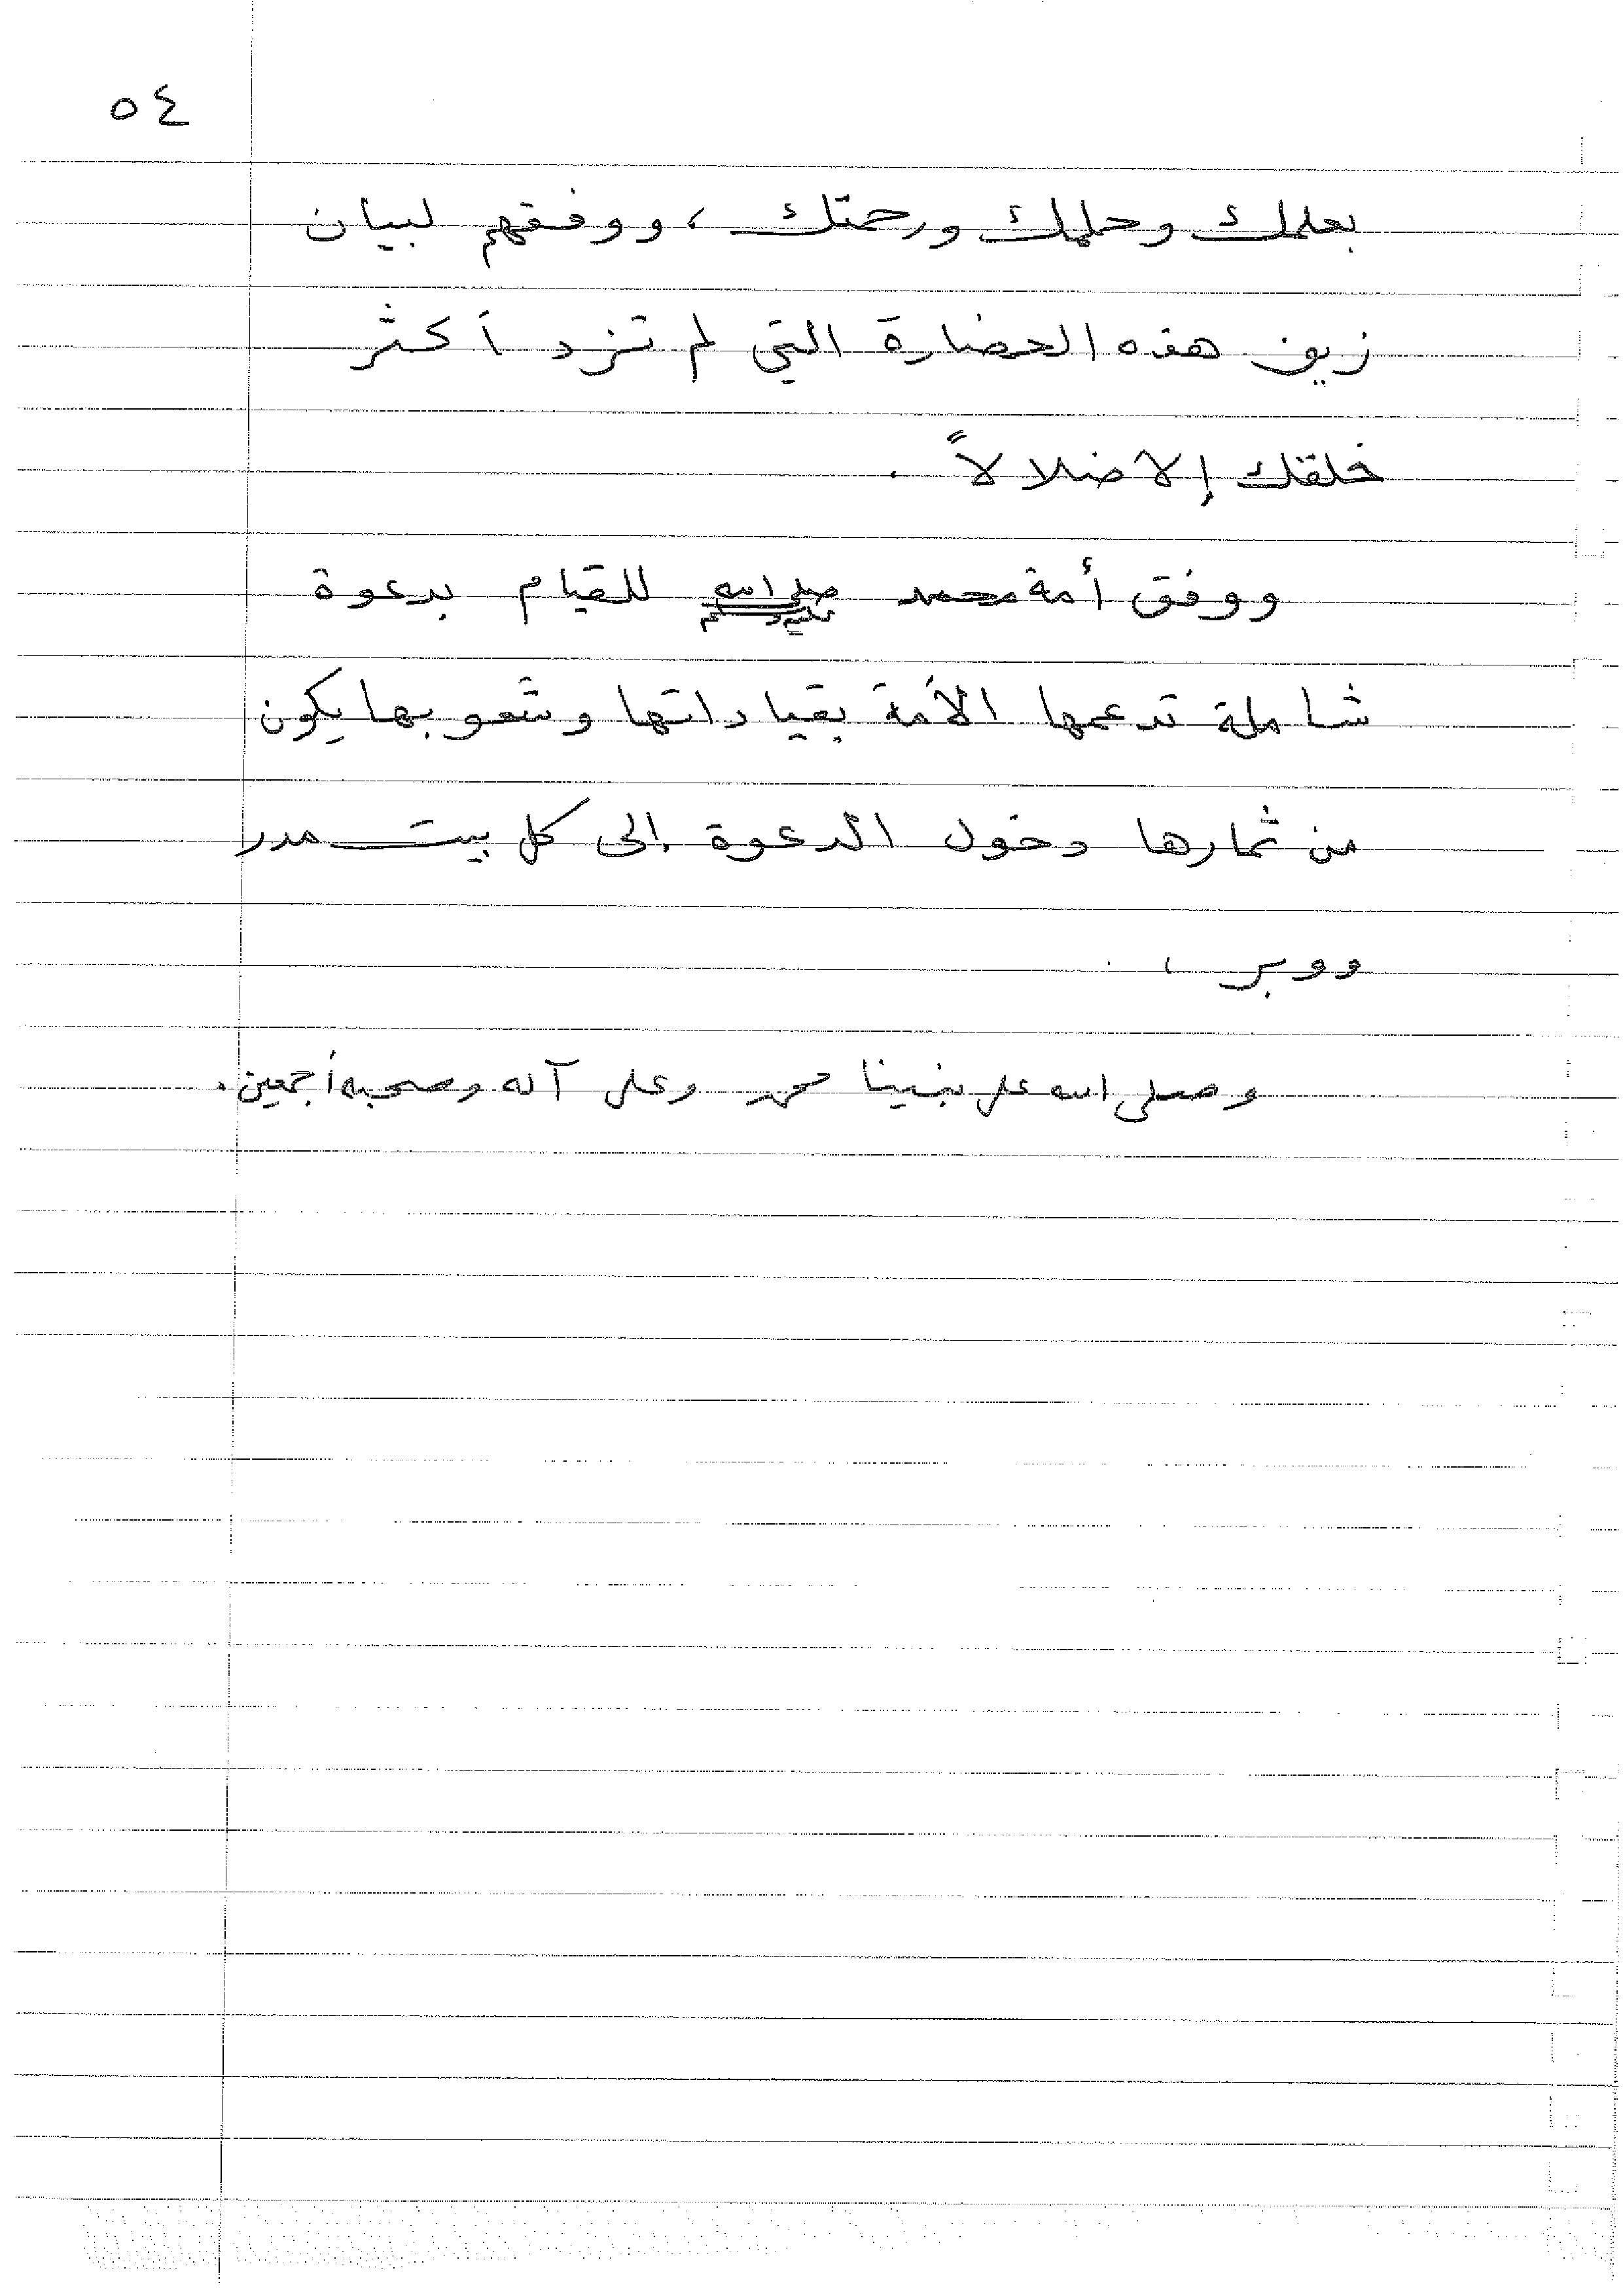 ٥٤
بعلمك وحلمك ورحمتك ، ووفقهم لبيان
زيف هذه الحضارة التي لم تزد أكثر
خلقك إلا ضلالاً .
ووفق أمة محمد صلى الله عليه وسلم للقيام بدعوة
شاملة تدعمها الأمة بقياداتها وشعوبها يكون
من ثمارها دخول الدعوة إلى كل بيت مدر
ووبر ،
وصلى الله على نبينا محمد وعلى آله وصحبه أجمعين .